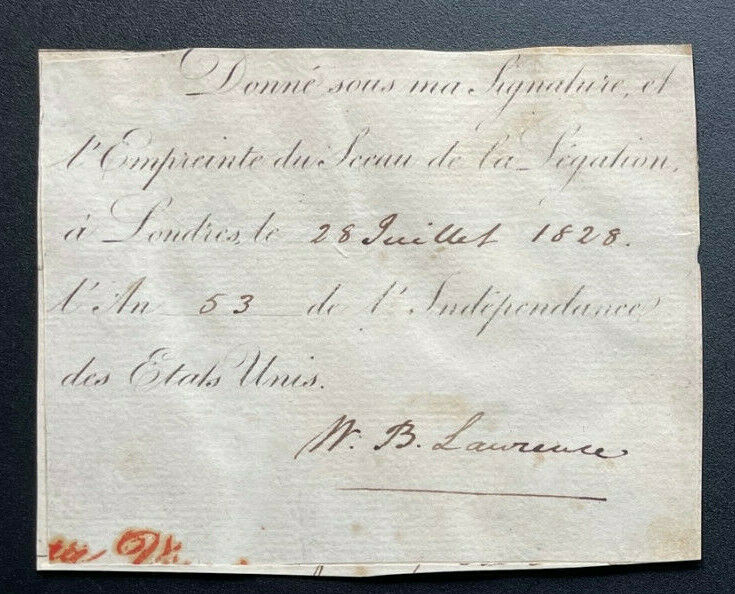 Donné sous ma Signature, et
l'Empreinte du Sceau de la Légation,
à Londres, le 28 Juillet 1828.
l'An 53 de l'Indépendance
des Etats Unis.
W. B. Lawrence